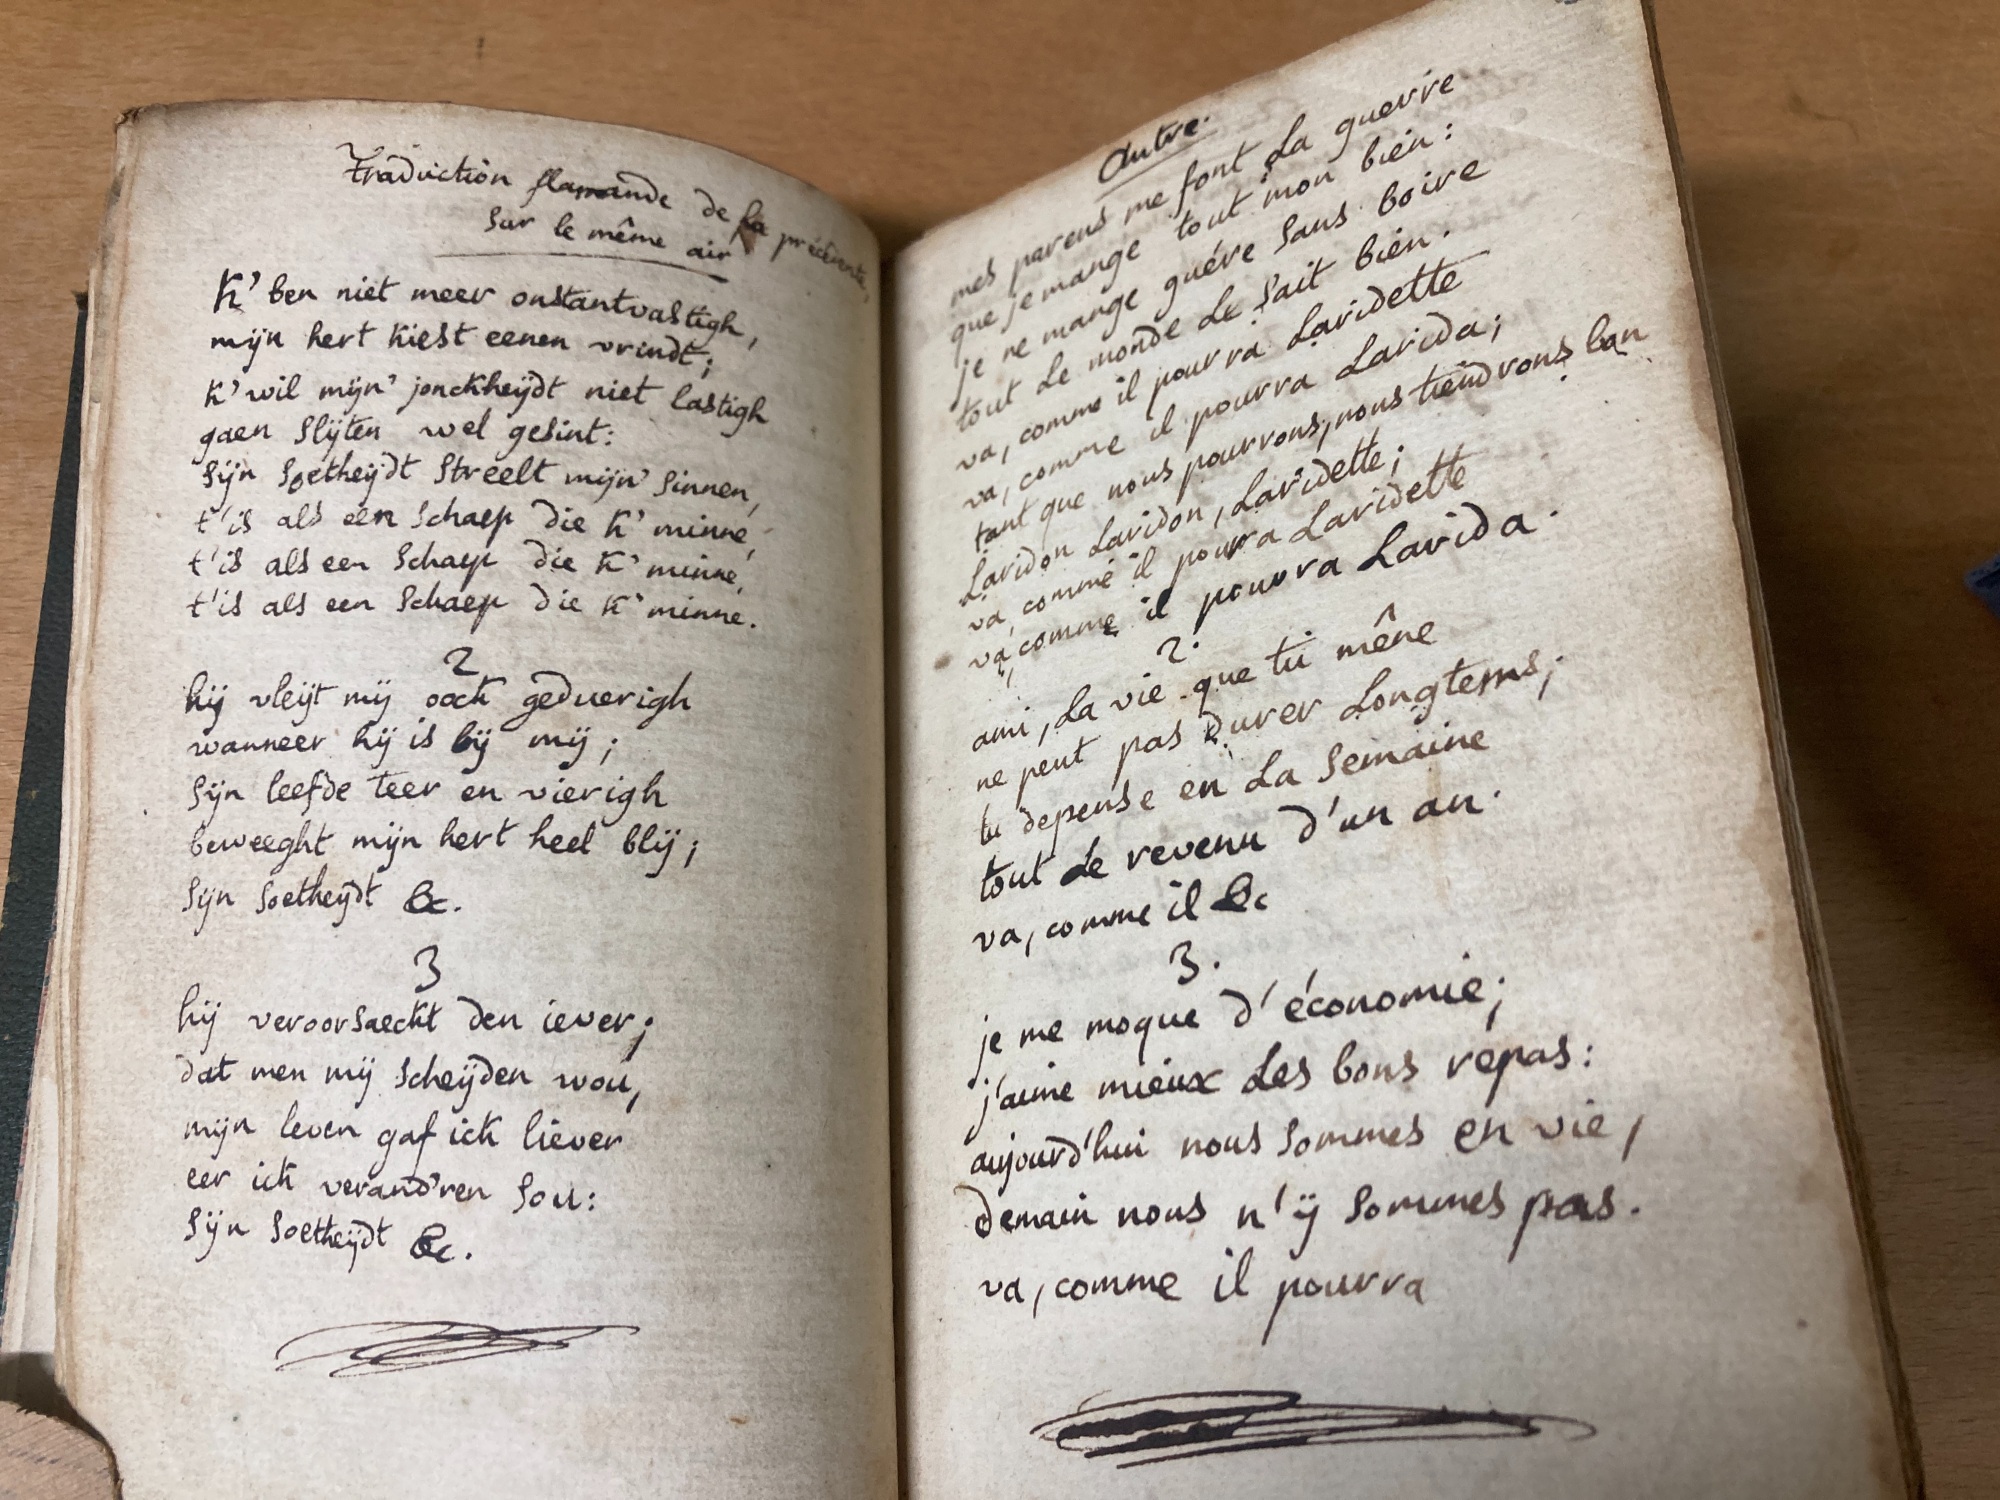 traduction flamande de la précédente,
sur le même air
K' ben niet meer onstantvastigh,
mijn hert kiest eenen vrindt;
K' wil mijn' jonckheÿdt niet lastigh
gaen slÿten wel gesint:
sÿn soetheÿdt streelt mijn' sinnen,
t'is als een schaep die K' minne,
t'is als een schaep die K' minne,
t'is als een schaep die K' minne.
2
hÿ vleÿt mÿ oock geduerigh
wanneer hÿ is bÿ mÿ;
sÿn leefde teer en vierigh
beweeght mijn hert heel blÿ;
sÿn soetheÿdt &c.
3
hÿ veroorsaeckt den iever;
dat men mÿ scheÿden wou,
mÿn leven gaf ick liever
eer ick verand'ren sou:
sÿn soetheÿdt &c.
autre.
mes parens me font la guerre
que je mange tout mon bien:
je ne mange guére sans boire
tout le monde le sait bien.
va, comme il pourra laridette
va, comme il pourra larida;
tant que nous pourrons, nous tiendrons bon
laridon laridon, laridette;
va, comme il pourra laridette
va, comme il pourra larida.
2.
ami, la vie que tu mêne
ne peut pas durer longtems;
tu depense en la semaine
tout le revenu d'un an.
va, comme il &c
3.
je me moque d'économie;
j'aime mieux les bons repas:
aujourd'hui nous sommes en vie,
demain nous n'ÿ sommes pas.
va, comme il pourra